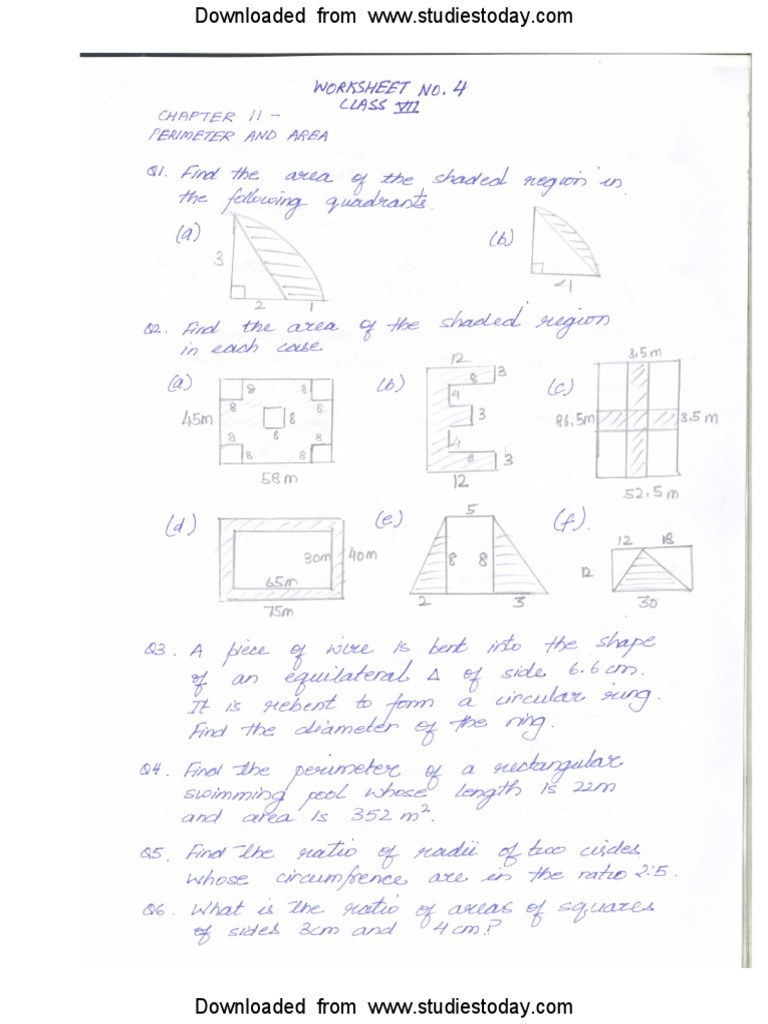 Downloaded from www.studiestoday.com
WORKSHEET NO. 4
CLASS VII
CHAPTER 11 –
PERIMETER AND AREA
Q1. Find the area of the shaded region in
the following quadrants.
(a) (b)
3
2 1 1
Q2. Find the area of the shaded region
in each case
(a) (b) (c)
8 8 8 8
45m 8 8
8 8 8 8
58m
12
8 3
4
3
4
8 3
12
3.5m
86.5m 3.5m
52.5m
(d) (e) (f).
30m 40m
65m
75m
5
8 8
2 3
12 18
12
30
Q3. A piece of wire is bent into the shape
of an equilateral Δ of side 6.6cm.
It is rebent to form a circular ring.
Find the diameter of the ring.
Q4. Find the perimeter of a rectangular
swimming pool whose length is 22m
and area is 352 m².
Q5. Find the ratio of radii of two circles
whose circumfrence are in the ratio 2:5.
Q6. What is the ratio of areas of squares
of sides 3cm and 4cm?
Downloaded from www.studiestoday.com